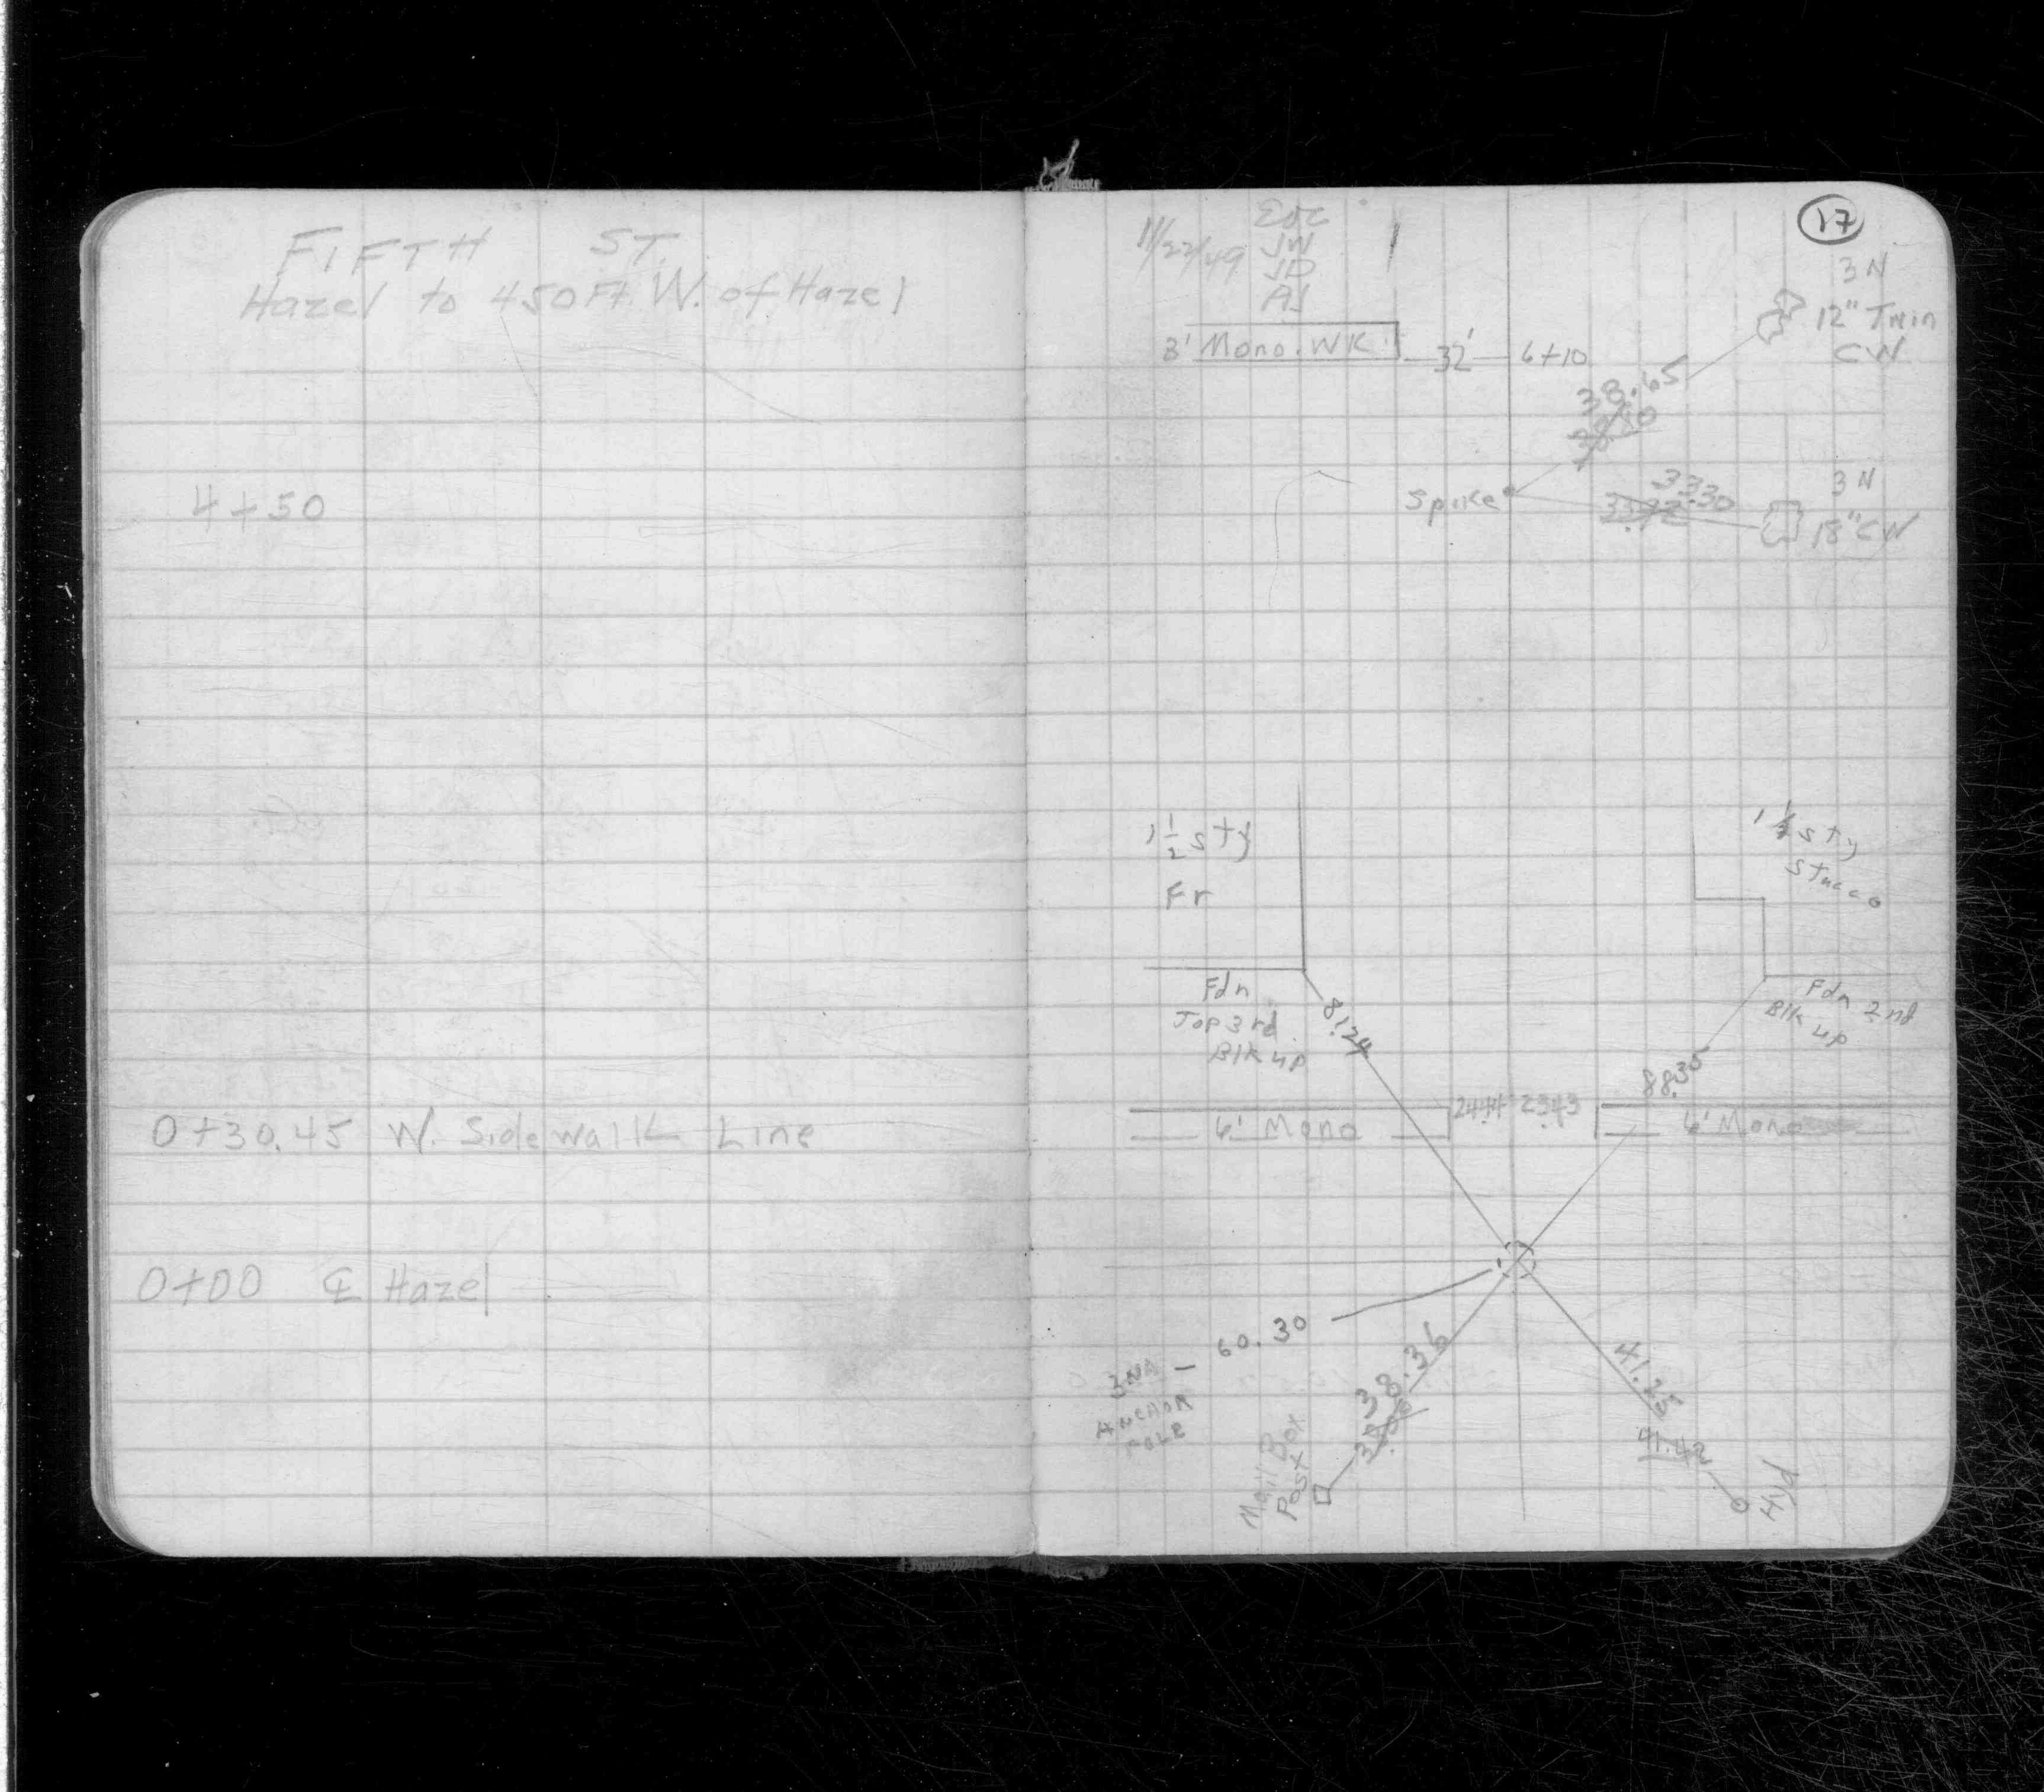 FIFTH ST.
Hazel to 450 Ft. W. of Hazel
4+50
0+30.45 W. Sidewalk Line
0+00 ℄ Hazel
17
11/22/49
JW
JD
AJ
3' Mono. WK.
32'
6+10
3N
12" Twin
CW
38.65
Spike
33.30
33.42
3N
18" CW
1 1/2 sty
Fr
1 1/2 sty
Stucco
Fdn
Top 3rd
Blk up
81.24
Fdn 2nd
Blk up
88.35
6' Mono
24.44
23.43
6' Mono
60.30
3NA
ANCHOR
POLE
38.36
Mail Box
Post
41.25
41.42
Hyd